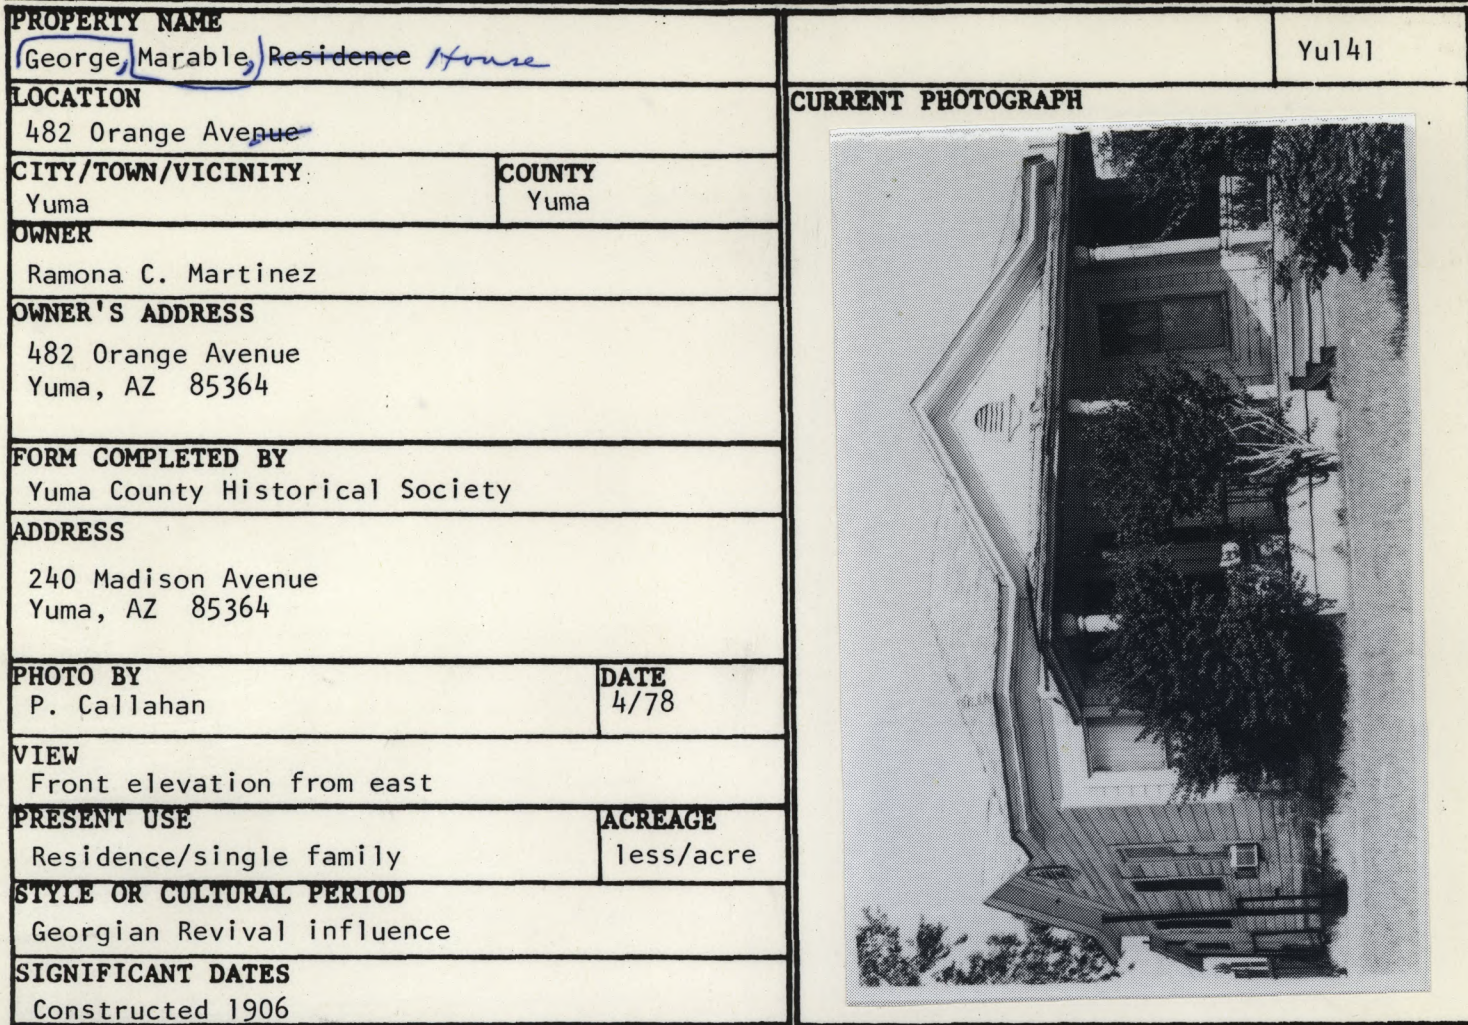 PROPERTY NAME
George, Marable, Residence House
Yu141
LOCATION
482 Orange Avenue
CURRENT PHOTOGRAPH
CITY/TOWN/VICINITY
Yuma
COUNTY
Yuma
OWNER
Ramona C. Martinez
OWNER'S ADDRESS
482 Orange Avenue
Yuma, AZ 85364
FORM COMPLETED BY
Yuma County Historical Society
ADDRESS
240 Madison Avenue
Yuma, AZ 85364
PHOTO BY
P. Callahan
DATE
4/78
VIEW
Front elevation from east
PRESENT USE
Residence/single family
ACREAGE
less/acre
STYLE OR CULTURAL PERIOD
Georgian Revival influence
SIGNIFICANT DATES
Constructed 1906